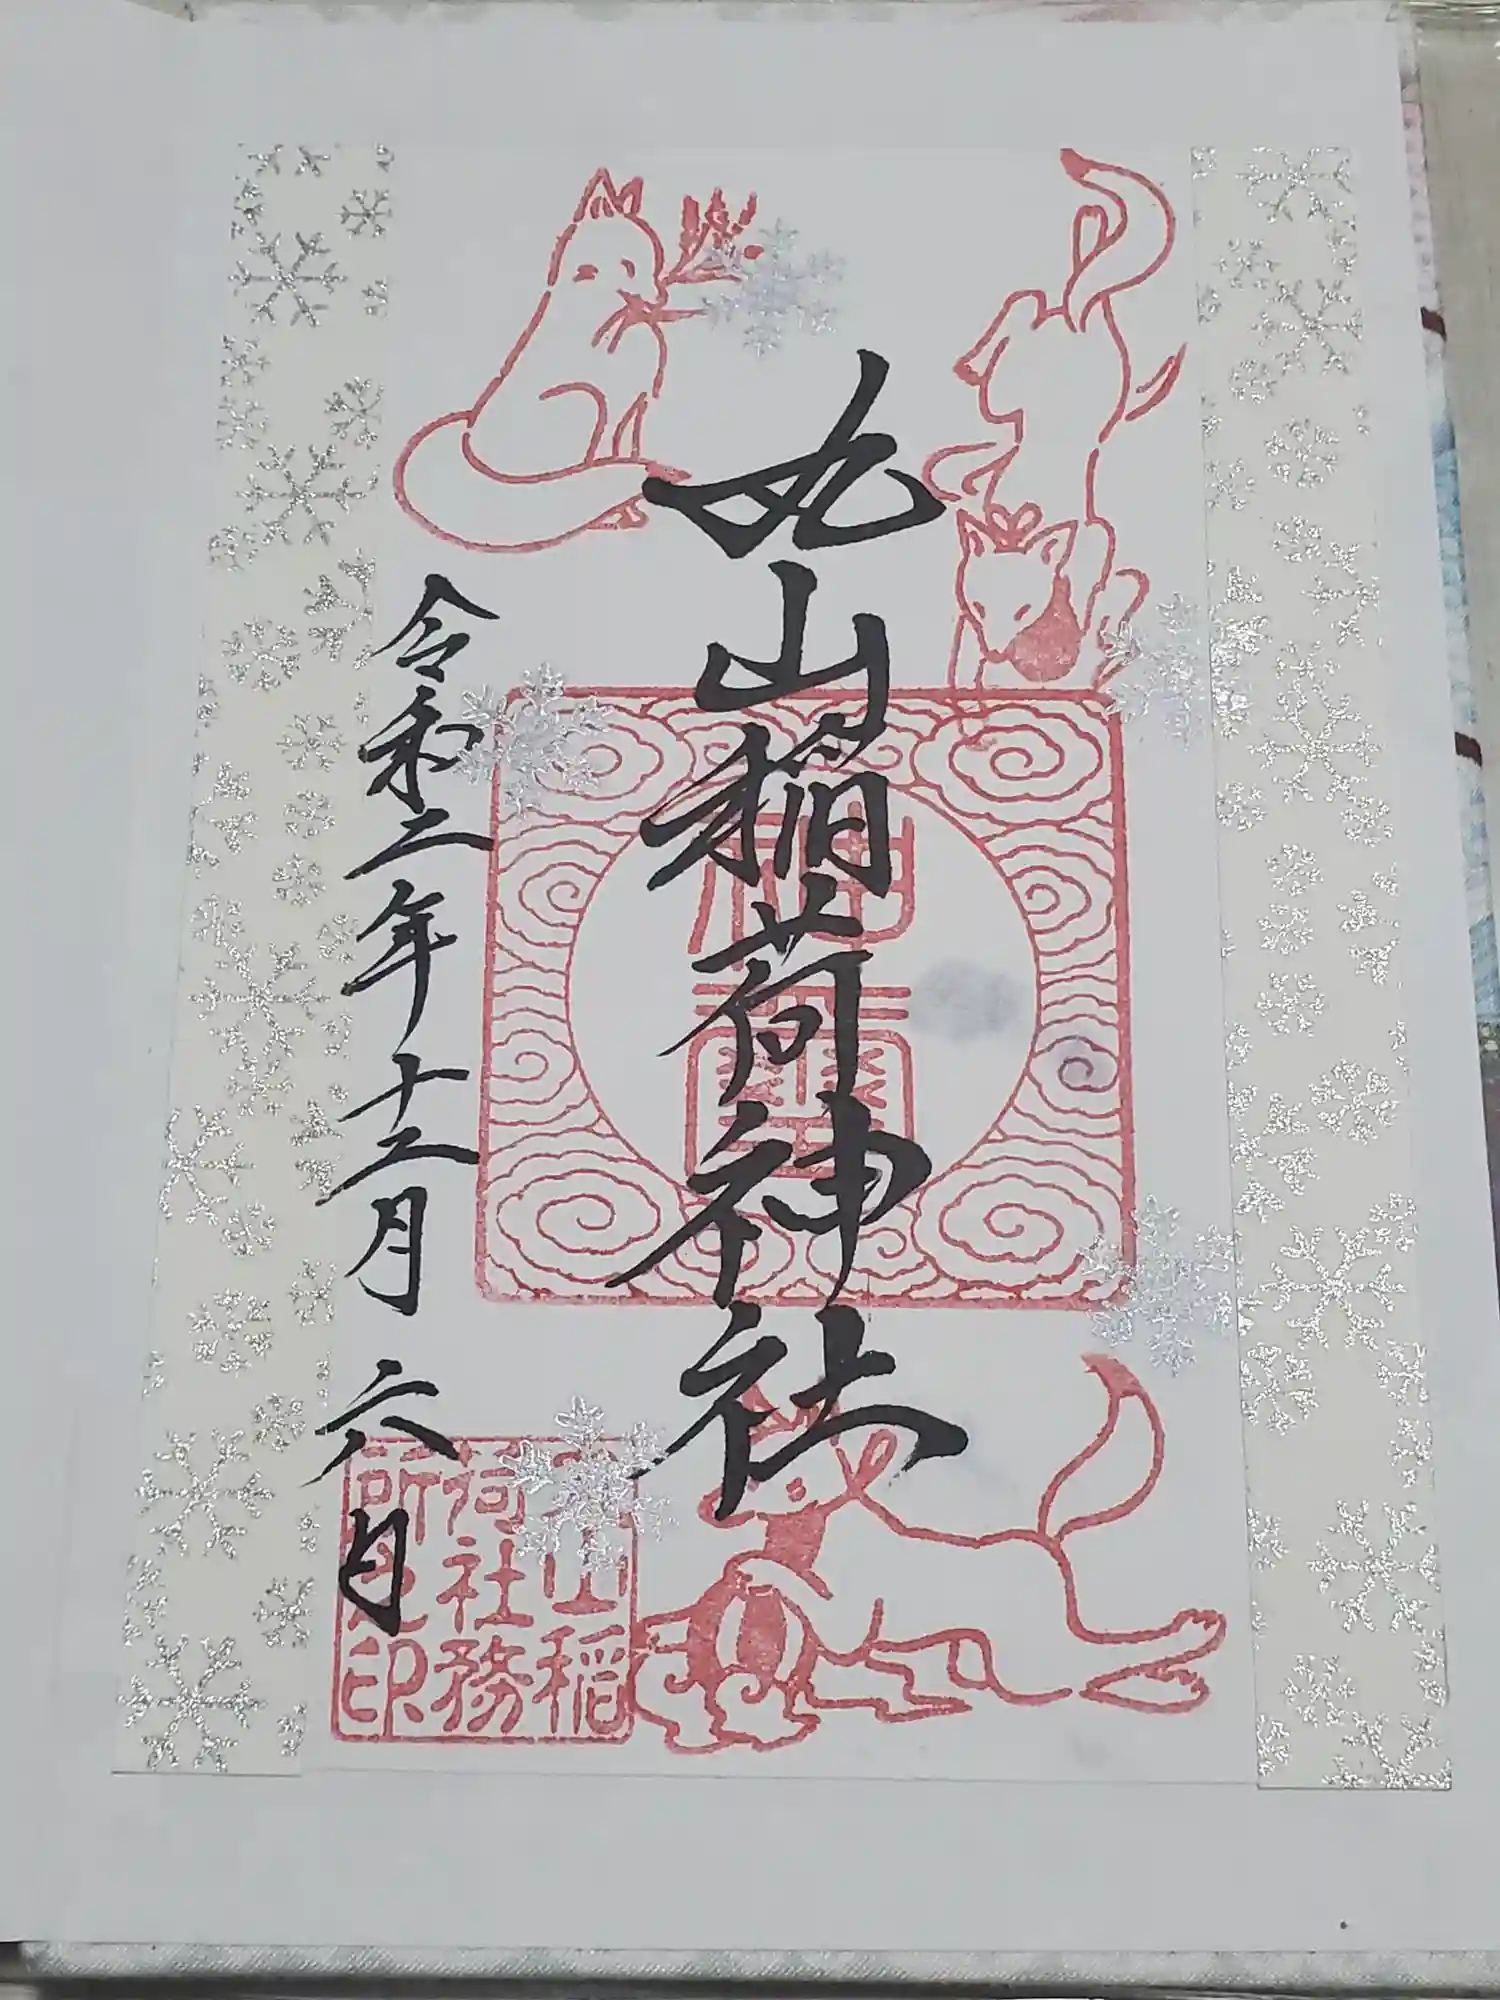 丸山稲荷神社
令和二年十二月六日
山稲
荷社務
所
印